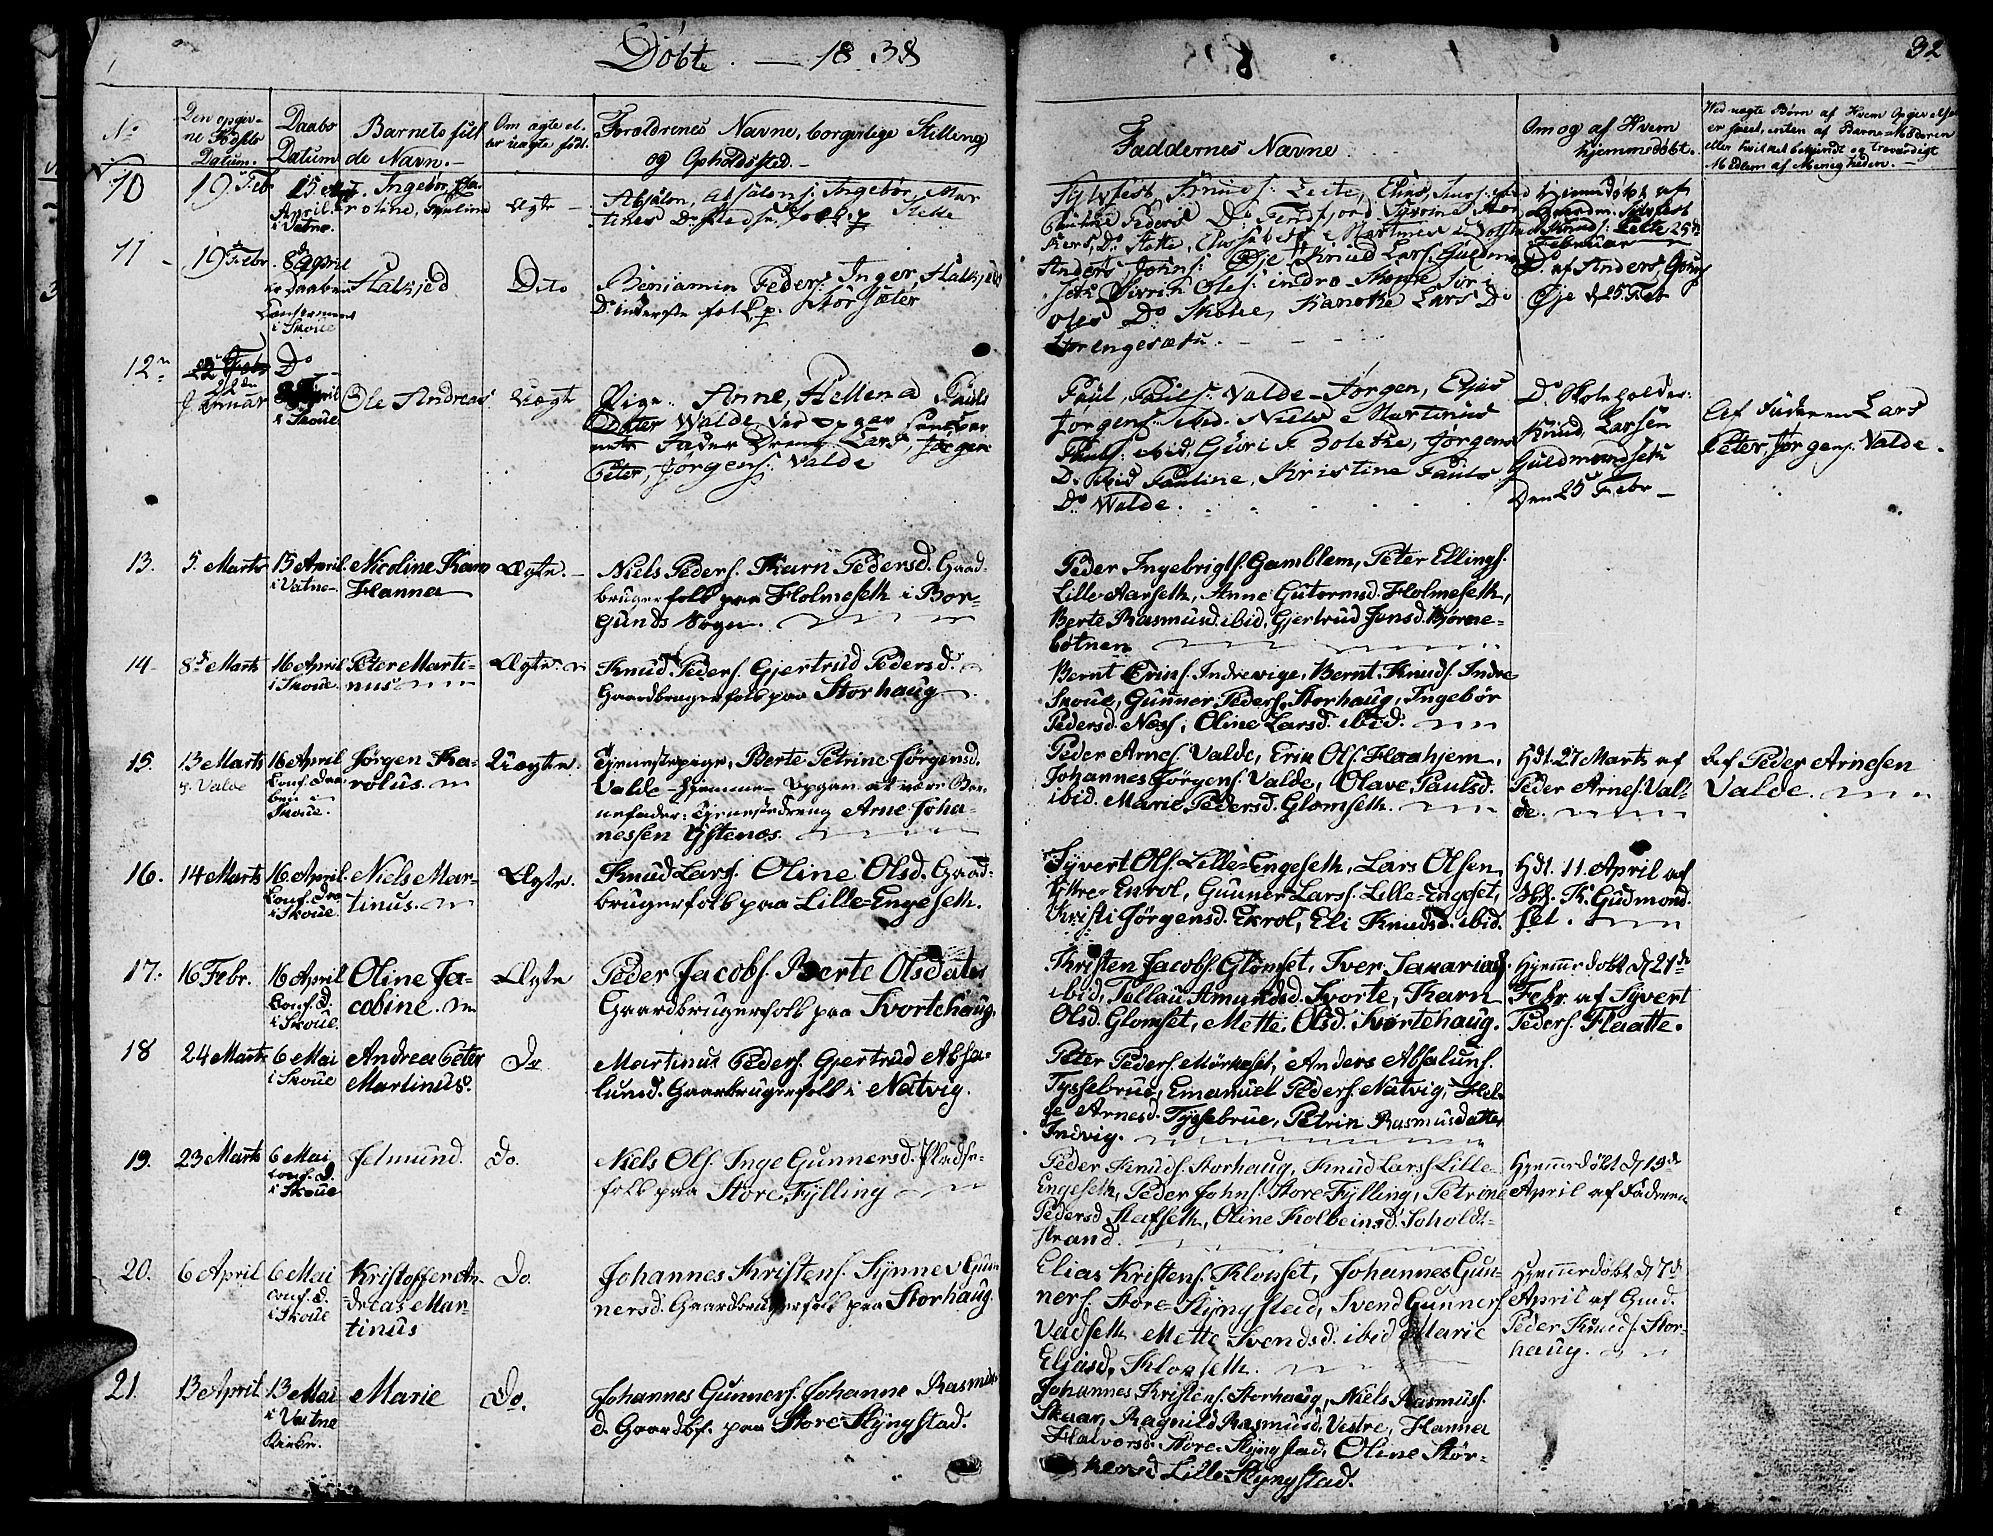 Döbte. — 1838
32
No
Den opgiv-
ne Födsels
Datum.
Daabs
Datum
Barnets fuld
de Navn.
Om ægte el-
ler uægte föd.
Foræeldrenes Navne, borgerlige Stilling
og Opholdsted.
Faddernes Navne
Om og af Hvem
hjemmedöbt.
Wed uægte Børn af Hvem Opgivelsen
er skeet, enten af Barne-Moderen
eller hvilket bekjendt og troværdigt
Medlem af Menigheden.
10
19 Feb
15
April
i Vatne
Ingebör,
roline, Paulina
Ægte
Absalon, Absalons. Ingebör, Mar
tines D.
Hjemmedöbt af
25de
Februar
11
19 Febr.
8 April
i Skoue
Malhjed
Dito
Beniamin Peders. Inger,
D. Storsæter
Anders, Johns: Øje, Knud Lars. Guldmun
seth Sivrik Oles. indre Skoue Siri
Oles D. Skoue, Lars D.
Storengesætu.
Do. af Anders,
Øje d 25 Feb
12
22de
Januar
Do
April
i Skoue
Ole Andreas
Uægt
Pige. Anne, Hellena Pauls
Dater Walde
Fader Dreng Lars,
Peter, Jörgens: Valde
Paul, Pauls: Valde - Jörgen, Elias
Jörgens: ibid. Niels Martinus
Pauls: ibid, Guri Bolethe, Jörgens
D. ibid Pauline, Kristine Pauls
D. Walde.
Do. Skoleholder:
Knud, Larsen
Guldmundseth
Den 25 Febr
Af Faderen Lars
Peter, Jörgens. Valde.
13.
5. Marts
15 April
i Vatne
Nicoline Karn
Hanna
Ægte.
Niels Peders. Karn Pedersd. Gaard-
brugerfolk paa Holmeseth i Bor-
gunds Sogn.
Peder Ingebrigts. Gamblem, Peter Ellings.
Lille-Aarseth, Anne Gutormsd. Holmeseth,
Berte Rasmusd. ibid, Gjertrud Jonsd. Björne-
bötnen
14
8de Marts
16 April
i Skoue
Peter Marti-
nus
Ægte.
Knud Peders. Gjertrud Pedersd.
Gaardbrugerfolk paa Storhaug
Bernt Eriks. Indrevige, Bernt Knuds. Indre
Skoue, Gunnor Peders. Storhaug, Ingebör
Pedersd. Næss, Oline Larsd. ibid.
15.
13 Marts
p. Valde
16 April
Conf. Daa
ben i
Skoue.
Jörgen Ka-
rolus.
Uægte.
Tjenestepige, Berte Petrine Jörgensd.
Valde - hjemme - opgav at være Bar-
nefader: Tjenestedreng Arne Joha-
nessen Ystenæs.
Peder Arnes. Valde, Erik Ols. Flaahjem,
Johannes Jörgens. Valde, Olave Paulsd.
ibid. Marie Pedersd. Glomseth.
Hdt. 27 Marts af
Peder Arnes. Val-
de.
Af Peder Arnesen
Valde.
16.
14 Marts
16 April
Conf. Daa
i Skoue
Niels Mar-
tinus.
Ægte.
Knud Lars. Oline Olsd. Gaard-
brugerfolk paa Lille-Engeseth.
Syvert Ols. Lille-Engeseth, Lars Olsen
Yttre Ekrol, Gunner Lars. Lille-Engeset,
Kristi Jörgensd. Ekrol, Eli Knudsd. ibid.
Hdt. 11 April af
K. Gudmond-
set.
17.
16 Febr.
16 April
Conf. d.
i Skoue
Oline Ja-
cobine.
Ægte
Peder Jacobs. Berte Olsdater
Gaardbrugerfolk paa Svortehaug.
Kristen Jacobs. Glomset, Iver Sakariads.
ibid, Tallau Amundsd. Svorte, Karn
Olsd. Glomset, Mette Olsd. Svortehaug.
Hjemmedöbt d 21de
Febr. af Syvert
Peders. Flaatte.
18
24 Marts
6 Mai
i Skoue
Andreas Peter
Martinus.
Do
Martinus Peders. Gjertrud Absa-
lund. Gaardbrugerfolk i Natvig.
Peter Peders. Mörkeset, Anders Absaluns.
Tyssebrue, Emanuel Peders. Natvig, Hel-
Arnesd. Tyssebrue, Petrin Rasmusdatter
Indvig.
19.
23 Marts
6 Mai
conf. d.
i Skoue
Jelmund.
Do.
Niels Ols. Inge Gunnersd. Pladse-
folk paa Store Fylling
Peder Knuds. Storhaug, Knud Lars. Lille-
Engeseth, Peder Johns. Store Fylling, Petrine
Pedersd. Stafseth, Oline Kolbeinsd. Soholdt-
strand.
Hjemmedöbt d 13de
April af Faderen
20.
6 April
6 Mai
conf. d.
i Skoue
Kristoffer An-
dreas Mar-
tinus
Do.
Johannes Kristens. Synnev Gun-
nersd. Gaardbrugerfolk paa Storhaug.
Elias Kristens. Klouset, Johannes Gun-
ners. Store-Slyngstad, Svend Gunners.
Vadseth Mette Svendsd. ibid Marie
Eljasd. Klouseth.
Hjemmedöbt d 7de
April af Gmd.
Peder Knuds. Stor-
haug.
21
13 April.
13 Mai
i Vatne
Kirke.
Marie
Do.
Johannes Gunners. Johanne Rasmus
d. Gaardbf. paa Store Slyngstad.
Johannes Kristens. Storhaug, Niels Rasmuss.
Skaar, Ragnild Rasmusd. Vestre, Hanna
Halvorsd. Store-Slyngstad, Oline Stör-
kersd. Lille Slyngstad.